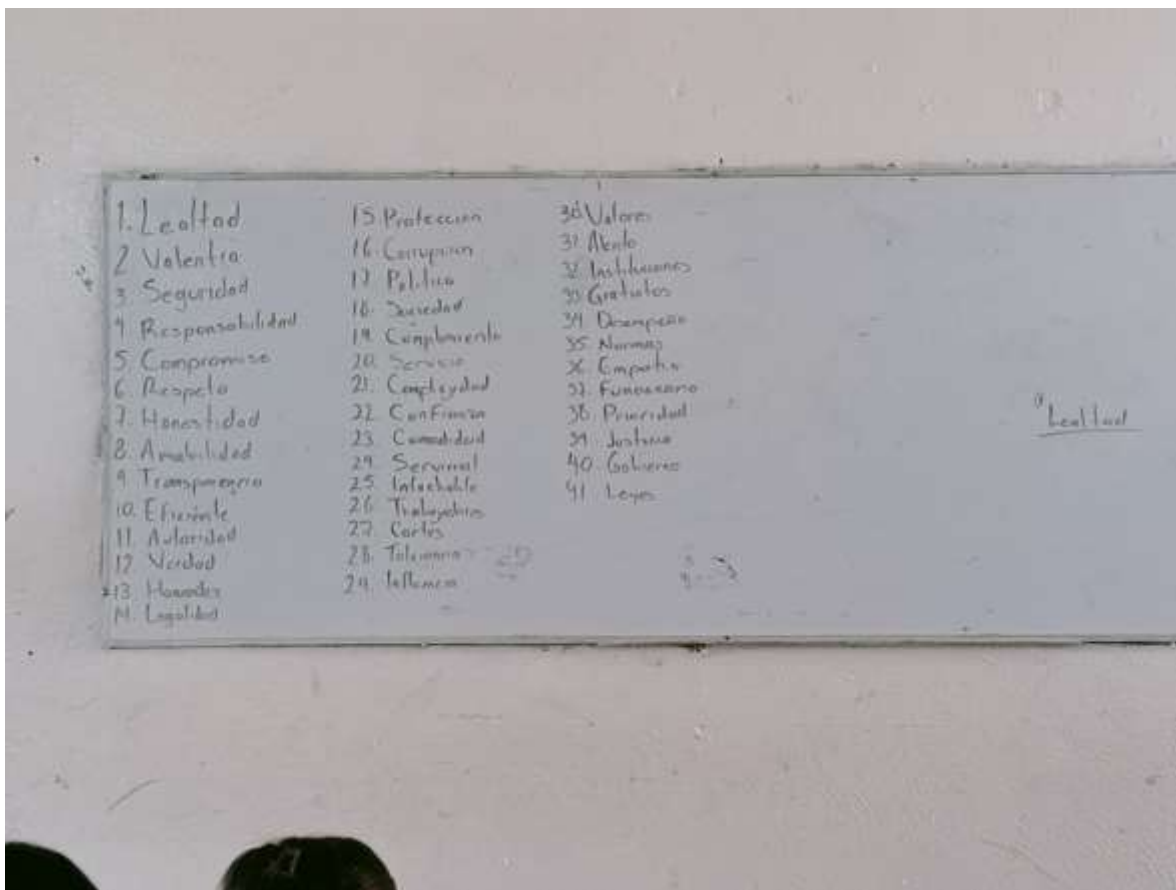 1. Lealtad
2 Valentia
3 Seguridad
4 Responsabilidad
5 Compromiso
6 Respeto
7. Honestidad
8 Amabilidad
9 Transparencia
10. Eficiente
11. Autoridad
12 Verdad
13 Honradez
14. Legalidad
15 Protección
16. Corrupcion
17 Politica
18. Sociedad
19. Cumplimiento
20. Servicio
21. Complejidad
22. Confianza
23. Comodidad
24. Servicial
25 Intachable
26 Trabajadores
27. Cortés
28. Tolerancia
29. Influencia
30 Valores
31
32 Instituciones
33 Gratuitos
34. Desempeño
35 Normas
36 Empatia
37. Funcionario
38 Prioridad
39. Justicia
40. Gobierno
41 Leyes
Lealtad